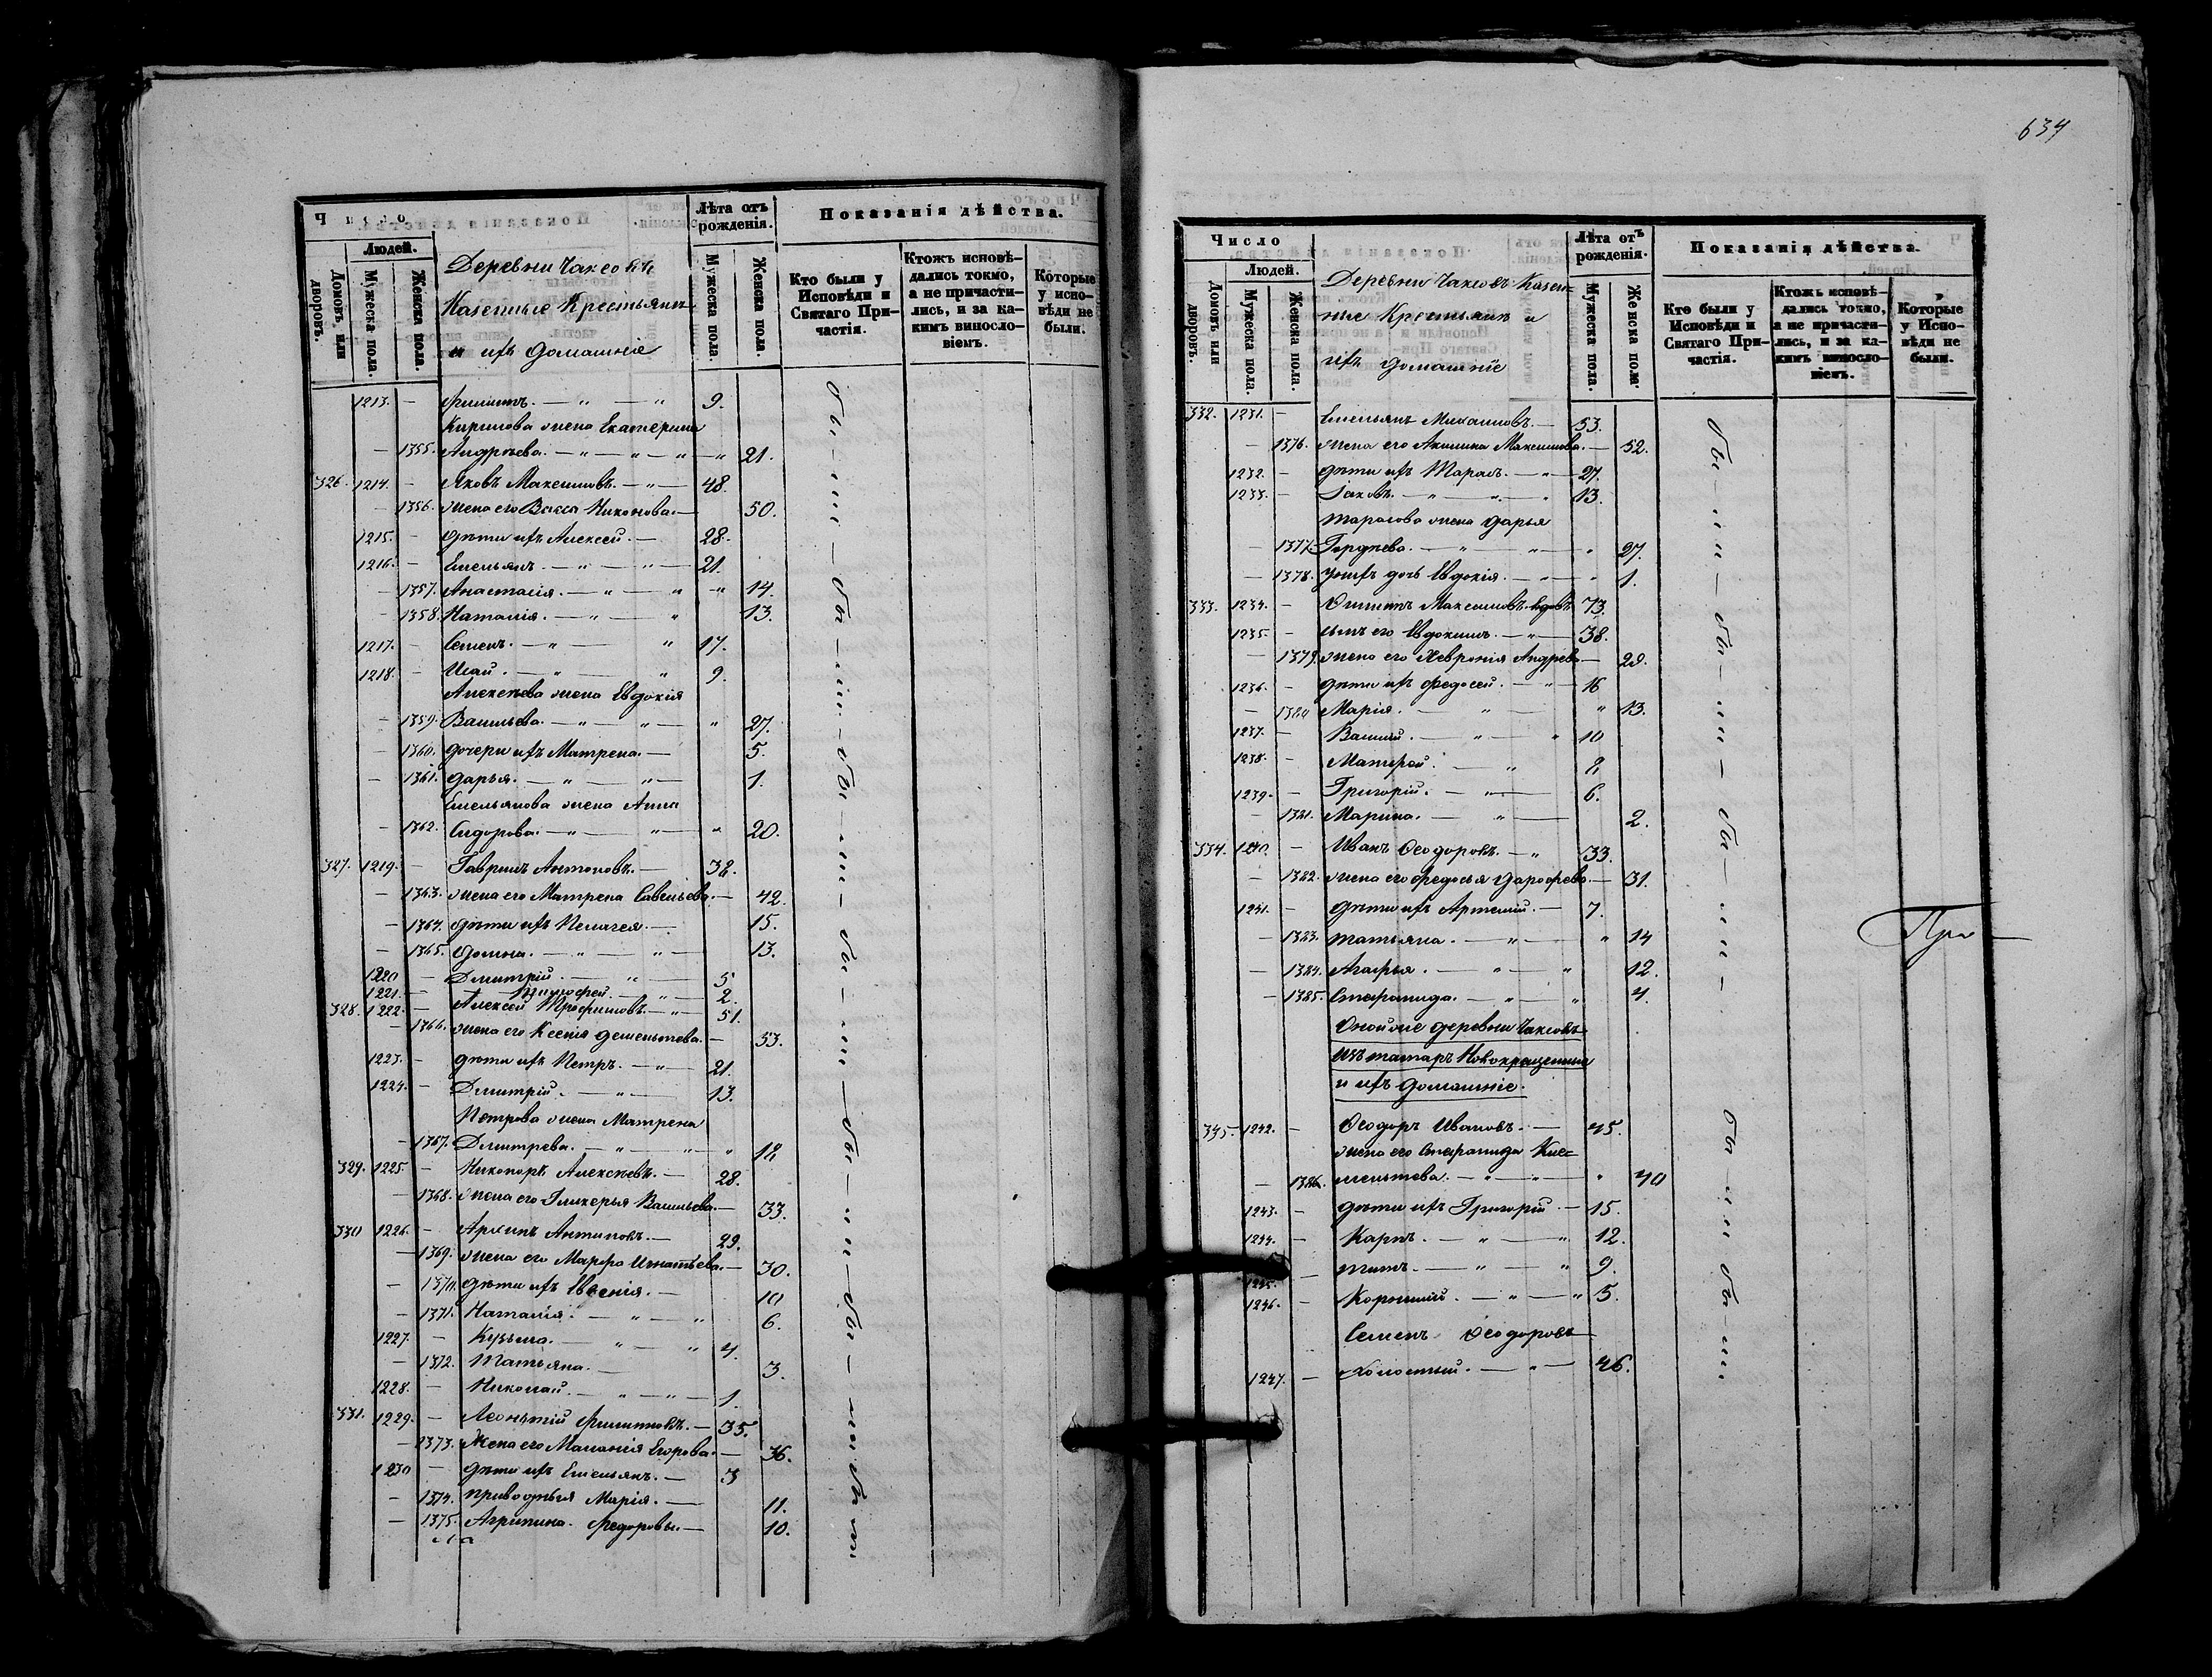 Число
Людей.
Домовъ, или дворовъ.
Мужеска пола.
Женска пола.
Деревни Чаксовъ
Казенные Крестьянъ
и ихъ домашніе
Лѣта отъ рожденія.
Мужеска пола.
Женска пола.
Показанія дѣйства.
Кто были у Исповѣди и Святаго При-
частія.
Ктожъ исповѣ-
дались токмо,
а не причасти-
лись, и за ка-
кимъ винosло-
віемъ.
Которые
у испо-
вѣди не
были.
1213. — Филипъ. — „ — „ 9.
Кирилова жена Екатерина
— 1355. Андрѣева. — „ — „ — „ — „ 21.
326. 1214. — Яковъ Максимовъ. — „ — 48.
— 1356. жена его Васса Никонова. — 50.
1215. — дѣти ихъ Алексей. — 28.
1216. — Емельянъ. — „ — „ — 21.
— 1357. Анастасія. — „ — „ „ 14.
— 1358. Наталія. — „ — „ 13.
1217. — Семенъ. — „ — „ 17.
1218. — Исай. — „ — „ 9.
Алексѣева жена Евдокія
— 1359. Васильева. — „ — „ — „ 27.
— 1360. дочери ихъ Матрена. — 5.
— 1361. Дарья. — „ — „ — 1.
Емельянова жена Анна
— 1362. Сидорова. — „ — „ — „ 20.
327. 1219. — Гаврилъ Антоновъ. — 38.
— 1363. жена его Матрена Савельева. — 42.
— 1364. дѣти ихъ Пелагея. — 15.
— 1365. Домна. — „ — „ — 13.
1220 — Дмитрій. — „ — 5
1221. — Тимофей. — „ — 2.
328. 1222. — Алексей Трофимовъ. — „ — 51.
— 1366. жена его Ксенія Дементьева. — 53.
1223. — дѣти ихъ Петръ. — „ — 21.
1224. — Дмитрій. — „ — 13.
Петрова жена Матрена
— 1367. Дмитрева. — „ — „ — „ 18.
329. 1225. — Никоноръ Алексѣевъ. — 28.
— 1368. жена его Гликерья Васильева. — 33.
330 1226. — Архипъ Антиповъ. — 29.
— 1369. жена его Марфа Игнатьева. — 30.
— 1370. дѣти ихъ Евгенія. — 10
— 1371. Наталія. — „ — „ 6.
1227. — Кузьма. — „ — „ 4.
— 1372. Татьяна. — 3.
1228. — Николай. — „ — „ — 1.
331. 1229. — Леонтій Филиповъ. — 35.
— 1373. Жена его Маланія Егорова. — 36.
1230 — дѣти ихъ Емельянъ. — 3
— 1374. приводныя Марія. — 11.
— 1375. Агрипина. Федоровы. — 10.
бы — ли — бы — ли — бы — ли — бы — ли — бы — ли — бы — ли бы ли
634
Число
Людей.
Домовъ или дворовъ.
Мужеска пола.
Женска пола.
Деревни Чаксовъ Казен-
ные Крестьянъ и
ихъ домашніе
Лѣта отъ рожденія.
Мужеска пола.
Женска пола.
Показанія дѣйства.
Кто были у Исповѣди и Святаго При-
частія.
Ктожъ исповѣ-
дались токмо,
а не причасти-
лись, и за ка-
кимъ винosло-
віемъ.
Которые
у Испо-
вѣди не
были.
332. 1231. — Емельянъ Михаиловъ. — 53.
— 1376. жена его Акилина Максимова. — 52.
1232. — дѣти ихъ Тарасъ. — „ — 27.
1233. — Іаковъ. — „ — „ — „ 13.
Тарасова жена Дарья
— 1377. Гордѣева. — „ — „ — „ 27.
— 1378. у нихъ дочь Евдокія. — „ — „ 1.
333. 1234. — Филипъ Максимовъ. вдовъ 73.
1235. — сынъ его Евдокимъ. — „ — 38.
— 1379. жена его Хевронія Андрева — 29.
1236. — дѣти ихъ Федосей. — „ — 16
— 1320 Марія. — „ — „ 13.
1237. — Василій. — „ — „ 10
1238. — Матфей. — „ 8.
1239. — Григорій. — „ — 6.
— 1321. Марина. — „ — 2.
334. 1240. — Иванъ Ѳеодоровъ. — „ 33.
— 1322. жена его Федосья Дарофеева. — 31.
1241. — дѣти ихъ Артемій. — 7.
— 1323. Татьяна. — „ — „ 14
— 1324. Агафья. — „ — „ 12.
— 1325. Стефанида. — „ — „ 4.
Оной же деревни Чаксовъ
изъ татаръ Новокрещенныя
и ихъ домашніе.
335. 1242. — Ѳеодоръ Ивановъ. — 45.
жена его Стефанида Кле-
— 1326. ментьева. — „ — „ — „ 40
1243. — дѣти ихъ Григорій. — 15.
1244. — Карпъ. — „ — „ 12.
1245. — Титъ. — „ — „ 9.
1246. — Корнилій. — „ — „ 5.
Семенъ Ѳеодоровъ
1247. — холостый. — „ — 46.
бы — ли — бы — ли — бы — ли —
бы ли бы ли